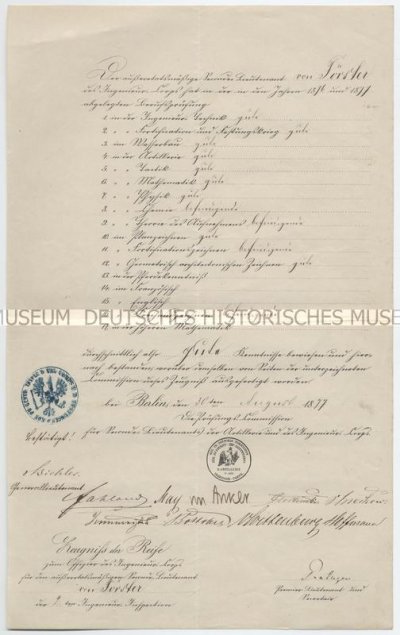 Der außeretatsmäßige Seconde-Lieutenant von Förster
des Ingenieur-Corps hat in der in den Jahren 1876 und 1877
abgelegten Berufsprüfung
1. in der Ingenieur-Technik gute
2. " " Fortification und Festungskrieg gute
3. im Wasserbau gute
4. in der Artillerie gute
5. " " Taktik gute
6. " " Mathematik gute
7. " " Physik gute
8. " " Chemie befriedigende
9. " Theorie des Aufnehmens befriedigende
10. im Planzeichnen gute
11. " Fortificationszeichnen befriedigende
12. " Geometrisch architectonischen Zeichnen gute
13. in der Pferdekenntniß
14. im Französisch
15. " Englisch
MUSEUM DEUTSCHES HISTORISCHES MUSEUM
17. in der höheren Mathematik
durchschnittlich also gute Kenntnisse bewiesen und hier-
nach bestanden, worüber demselben von Seiten der unterzeichneten
Commission dieses Zeugniß ausgefertigt worden
Berlin, den 30ten August 1877
Die Prüfungs-Commission
für Seconde-Lieutenants der Artillerie und des Ingenieur-Corps
Bestätigt!
Biehler
Generallieutenant
May von
Hoffmann
Zeugniß der Reife
zum Offizier des Ingenieur-Corps
für den außeretatsmäßigen Seconde-Lieutenant
von Förster
der 2. ten Ingenieur-Inspection
Premier-Lieutenant und
Secretair